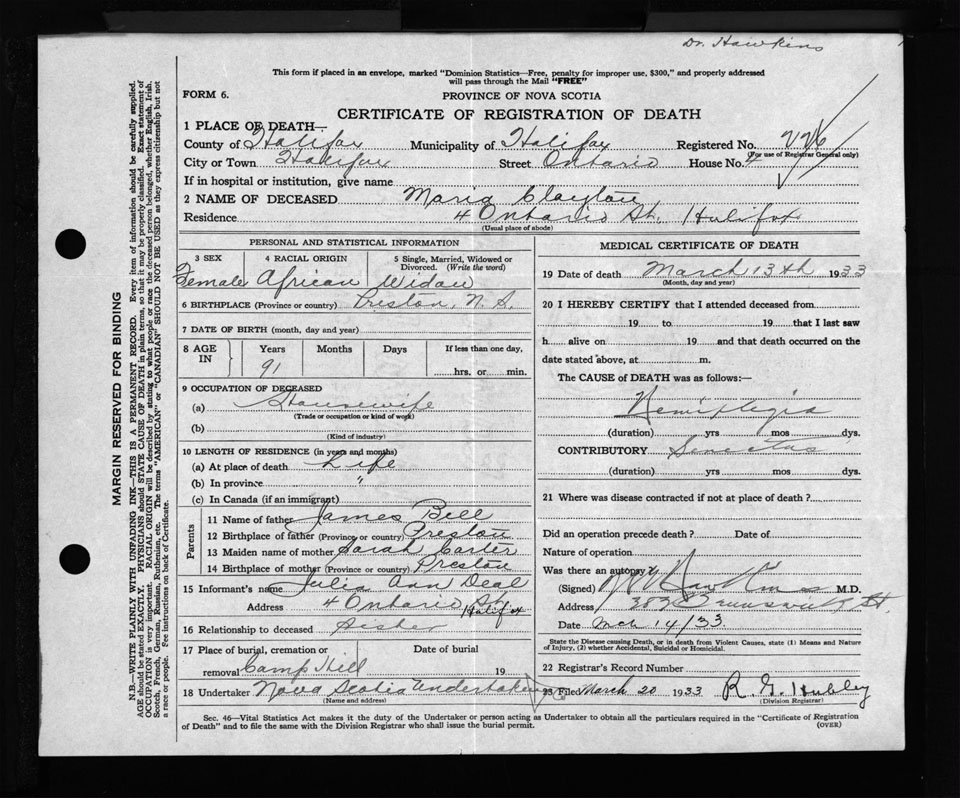 Dr. Hawkins
This form if placed in an envelope, marked "Dominion Statistics—Free, penalty for improper use, $300," and properly addressed
will pass through the Mail "FREE"
FORM 6.
PROVINCE OF NOVA SCOTIA
CERTIFICATE OF REGISTRATION OF DEATH
1 PLACE OF DEATH—
County of Halifax Municipality of Halifax Registered No.
(For use of Registrar General only)
City or Town Halifax Street Ontario House No. 4
If in hospital or institution, give name
2 NAME OF DECEASED Maria Clayton
Residence 4 Ontario St. Halifax
(Usual place of abode)
PERSONAL AND STATISTICAL INFORMATION
3 SEX Female
4 RACIAL ORIGIN African
5 Single, Married, Widowed or Divorced. (Write the word) Widow
6 BIRTHPLACE (Province or country) Preston, N. S.
7 DATE OF BIRTH (month, day and year)
8 AGE IN Years Months Days If less than one day,
91 hrs. or min.
9 OCCUPATION OF DECEASED
(a) Housewife
(Trade or occupation or kind of work)
(b)
(Kind of industry)
10 LENGTH OF RESIDENCE (in years and months)
(a) At place of death Life
(b) In province "
(c) In Canada (if an immigrant)
Parents
11 Name of father James Bell
12 Birthplace of father (Province or country) Preston
13 Maiden name of mother Sarah Carter
14 Birthplace of mother (Province or country) Preston
15 Informant's name Julia Ann Deal
Address 4 Ontario St. Halifax
16 Relationship to deceased Sister
17 Place of burial, cremation or removal Camp Hill
Date of burial 19
18 Undertaker Nova Scotia Undertaking
(Name and address)
MEDICAL CERTIFICATE OF DEATH
19 Date of death March 13th 1933
(Month, day and year)
20 I HEREBY CERTIFY that I attended deceased from
19 to 19 that I last saw
h alive on 19 and that death occurred on the
date stated above, at m.
The CAUSE of DEATH was as follows:—
Hemiplegia
(duration) yrs mos dys.
CONTRIBUTORY Senectus
(duration) yrs mos dys.
21 Where was disease contracted if not at place of death?
Did an operation precede death? Date of
Nature of operation
Was there an autopsy?
(Signed) Hawkins M.D.
Address Brunswick St.
Date Mch 14/33
State the Disease causing Death, or in death from Violent Causes, state (1) Means and Nature
of Injury, (2) whether Accidental, Suicidal or Homicidal.
22 Registrar's Record Number
23 Filed March 20 1933 R. G. Hubley
(Division Registrar)
Sec. 46—Vital Statistics Act makes it the duty of the Undertaker or person acting as Undertaker to obtain all the particulars required in the "Certificate of Registration
of Death" and to file the same with the Division Registrar who shall issue the burial permit.
(OVER)
MARGIN RESERVED FOR BINDING
N.B.—WRITE PLAINLY WITH UNFADING INK—THIS IS A PERMANENT RECORD. Every item of information should be carefully supplied.
AGE should be stated EXACTLY. PHYSICIANS should STATE CAUSE OF DEATH in plain terms, so that it may be properly classified. Exact statement of
OCCUPATION is very important. RACIAL ORIGIN will be described by stating to what people or race the deceased person belonged, whether English, Irish,
Scotch, French, German, Russian, Ruthenian, etc. The terms "AMERICAN" or "CANADIAN" SHOULD NOT BE USED as they express citizenship but not
a race or people. Fee instructions on back of Certificate.